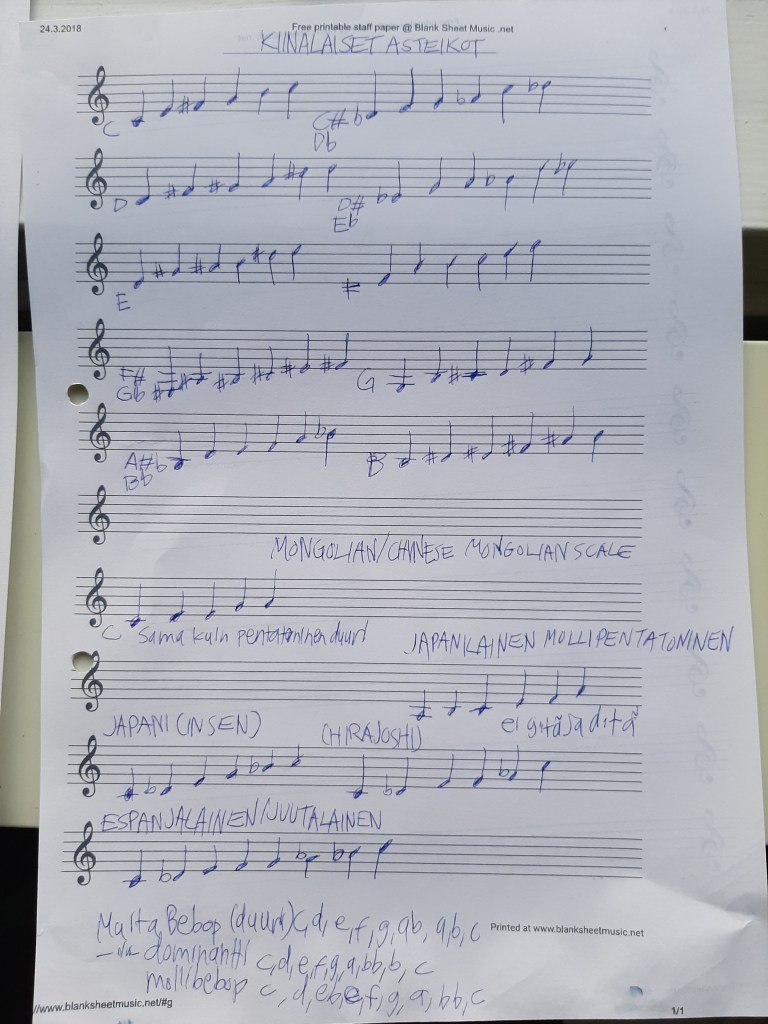 24.3.2018 Free printable staff paper @ Blank Sheet Music .net
KIINALAISET ASTEIKOT
C C#
Db
D D#
Eb
E F
F# G
Gb
A# B
Bb
MONGOLIAN/CHINESE MONGOLIAN SCALE
C Sama kuin pentatoninen duuri
JAPANILAINEN MOLLIPENTATONINEN
JAPANI (INSEN) (HIRAJOSHI)
ESPANJALAINEN/JUUTALAINEN
Muita Bebop (duuri) c, d, e, f, g, ab, a, b, c
Printed at www.blanksheetmusic.net
dominantti c, d, e, f, g, a, bb, b, c
mollibebop c, d, eb, e, f, g, a, bb, c
//www.blanksheetmusic.net/#g 1/1